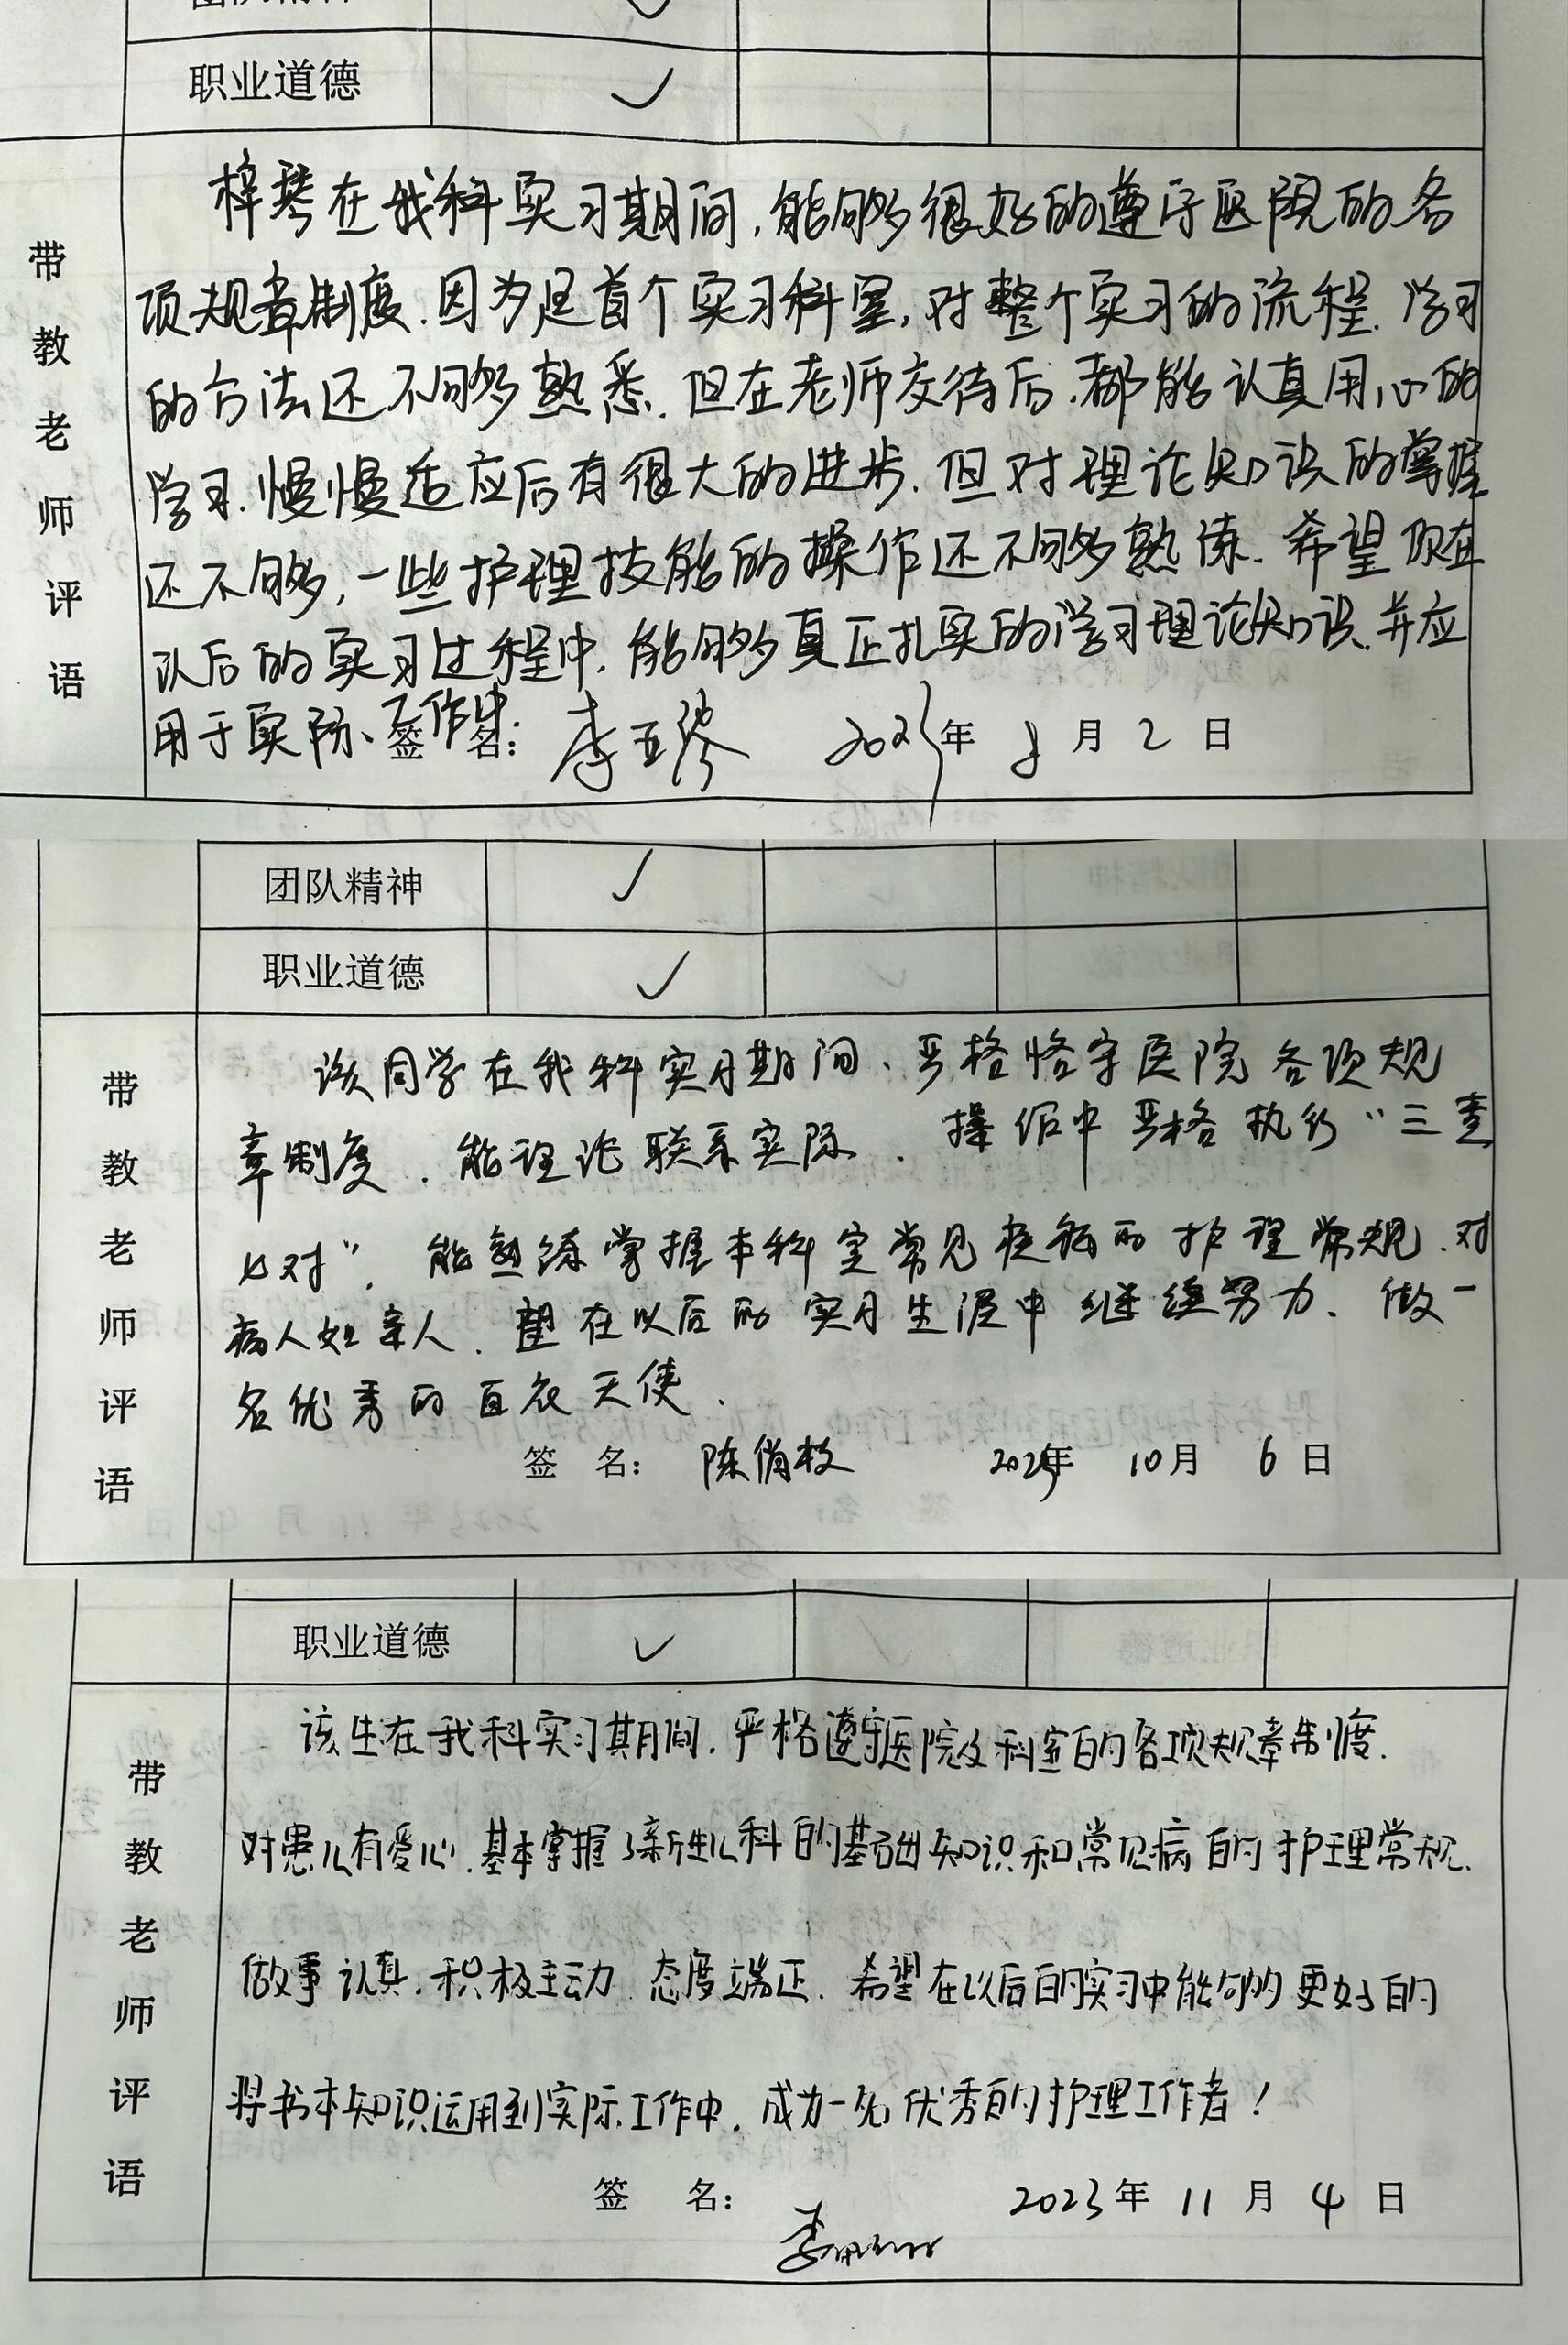 团队精神
职业道德
带教老师评语
梓琴在我科实习期间,能够很好的遵守医院的各
项规章制度.因为是首个实习科室,对整个实习的流程.学习
的方法还不够熟悉.但在老师交待后.都能认真用心的
学习.慢慢适应后有很大的进步.但对理论知识的掌握
还不够,一些护理技能的操作还不够熟练.希望你在
以后的实习过程中.能够真正扎实的学习理论知识.并应
用于实际、工作中
签 名: 李 2023年 8月2日
团队精神
职业道德
带教老师评语
该同学在我科实习期间、严格恪守医院各项规
章制度.能理论联系实际.操作中严格执行“三查
七对”.能熟练掌握本科室常见疾病的护理常规.对
病人如亲人.望在以后的实习生涯中继续努力、做一
名优秀的白衣天使.
签 名: 陈俏枚 2023年 10月 6日
职业道德
带教老师评语
该生在我科实习期间.严格遵守医院及科室的各项规章制度.
对患儿有爱心.基本掌握了新生儿科的基础知识和常见病的护理常规.
做事认真.积极主动.态度端正.希望在以后的实习中能够更好的
将书本知识运用到实际工作中.成为一名优秀的护理工作者!
签 名: 2023年 11月 4日